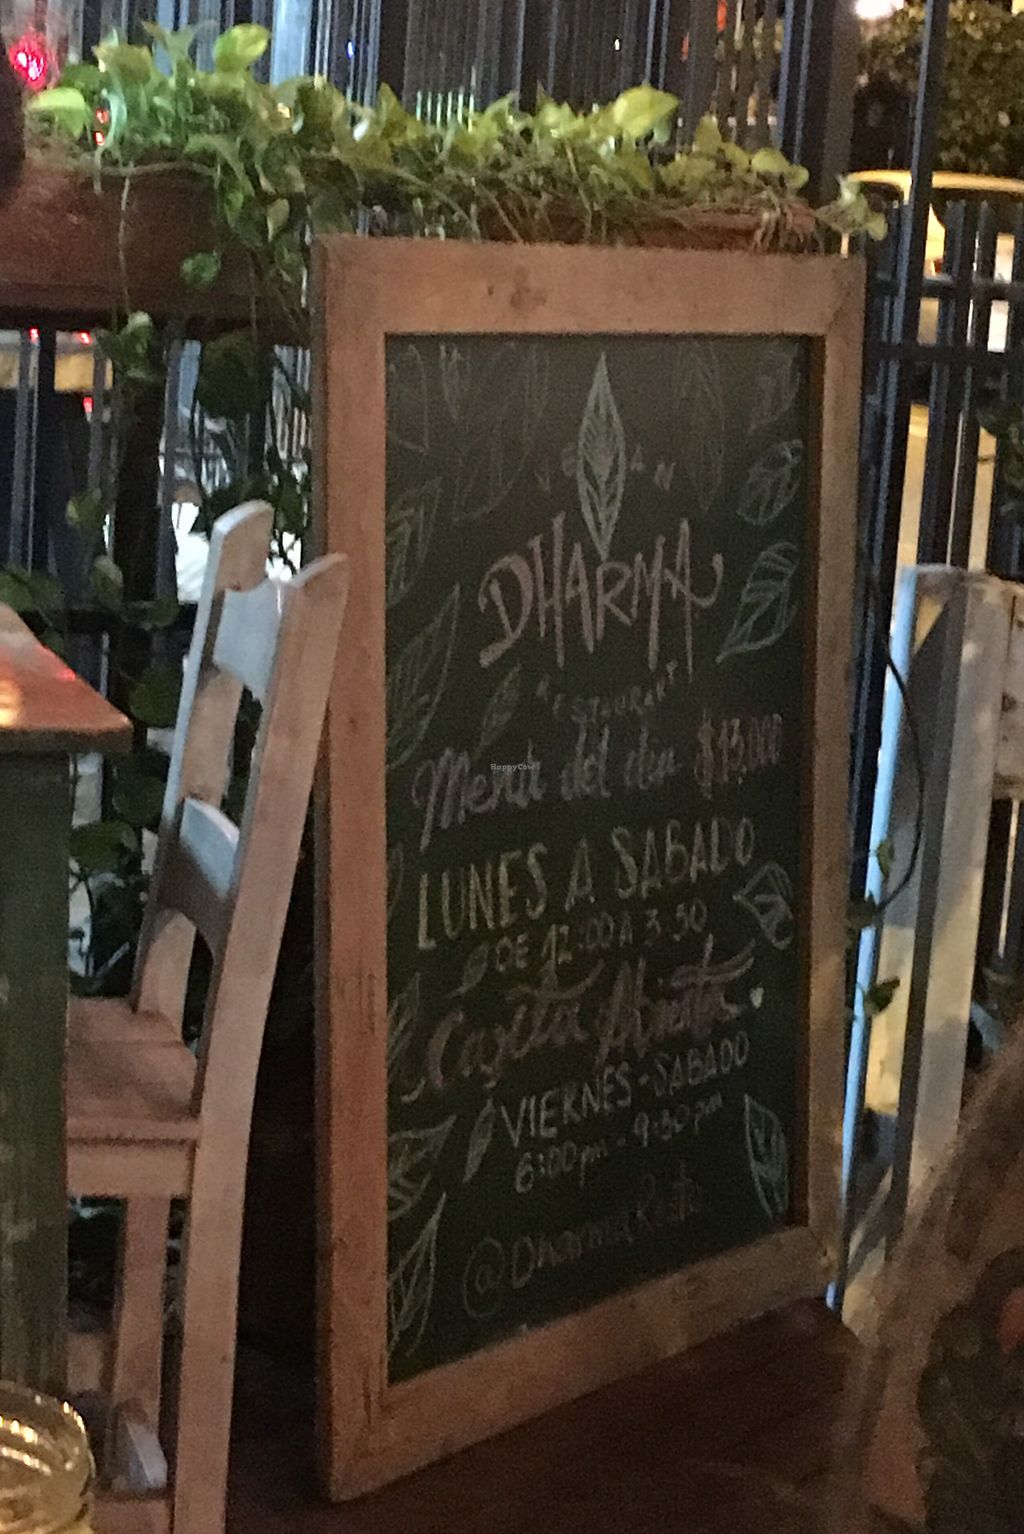 VEGAN
DHARMA
RESTAURANT
Menú del día $13,000
LUNES A SABADO
DE 12:00 A 3:30
Carta Abierta
VIERNES - SABADO
6:00 pm - 9:30 pm
@DharmaResto
HappyCow